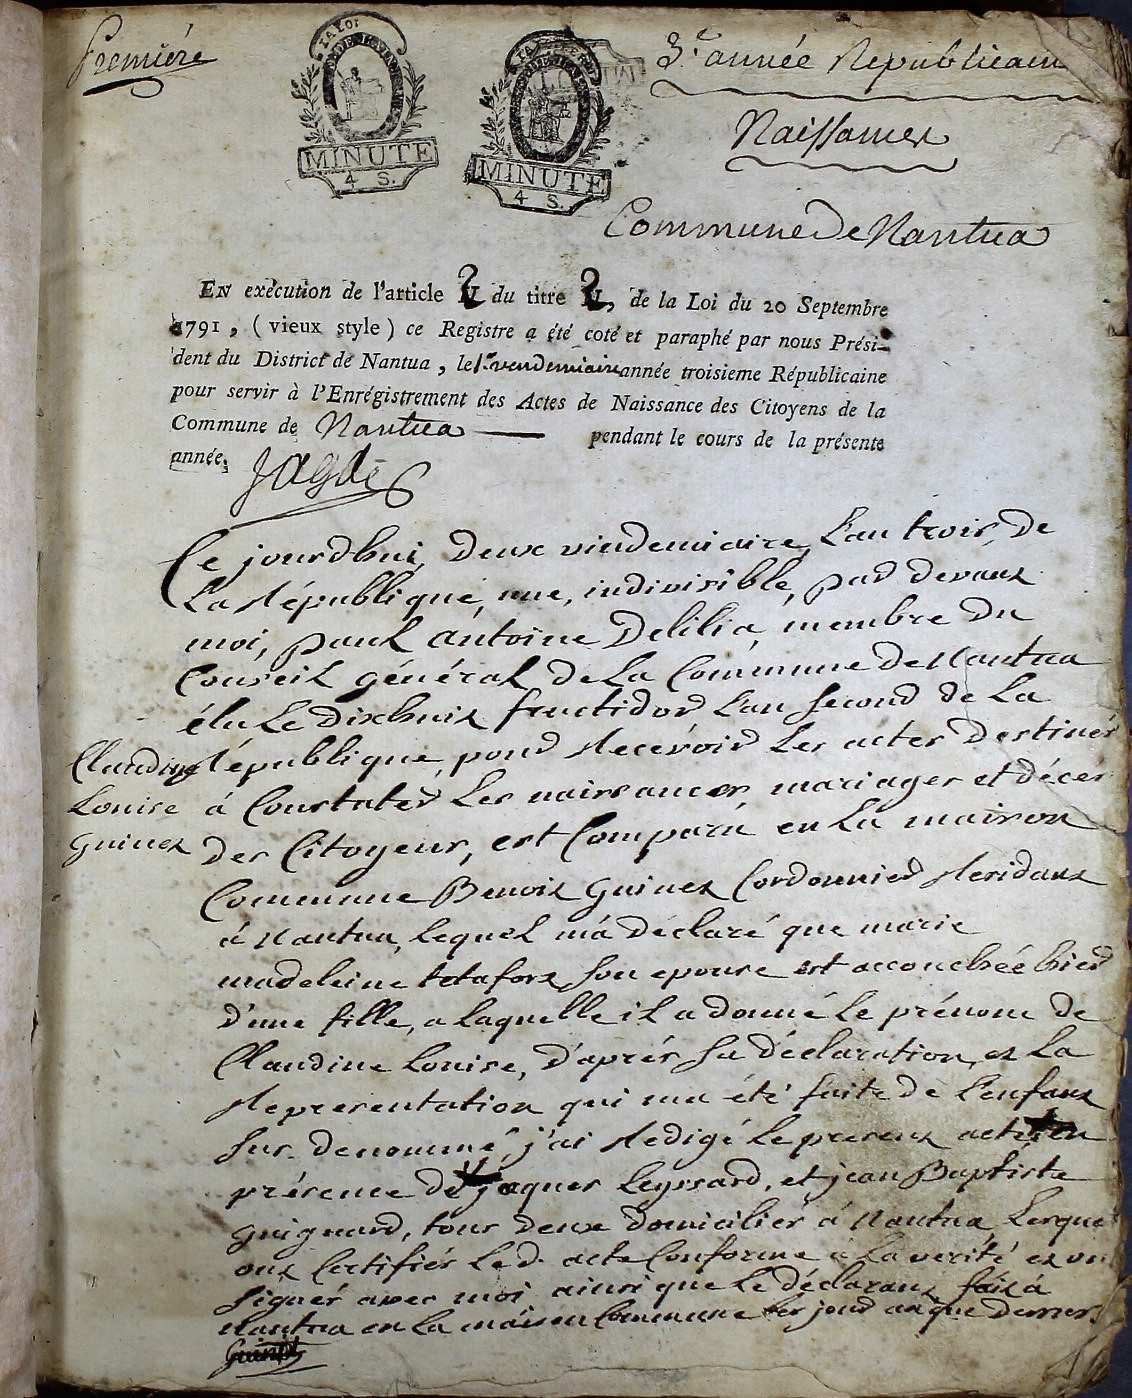 Premiére
LA LOI
MINUTE
4 S.
MINUTE
4 S.
3.e année Republicaine
Naissances
Commune De Nantua
EN exécution de l'article 2 du titre 2, de la Loi du 20 Septembre
1791, (vieux style) ce Registre a été coté et paraphé par nous Prési-
dent du District de Nantua, le 1.er vendemiaire année troisieme Républicaine
pour servir à l'Enrégistrement des Actes de Naissance des Citoyens de la
Commune de Nantua pendant le cours de la présente
année.
Jagde
Ce jourdhui, deux vindemiaire, L'an trois, de
La République, une, indivisible, par devant
moi, paul antoine Delilia, membre du
Conseil général de La Commune de Nantua
élu Le Dixhuit fructidor L'an second de La
République, pour Recevoir Les actes Destinés
à Constater Les naissances mariages et décès
des Citoyens, est Comparu en La maison
Commune Benoit Guinet Cordonnier Residant
à Nantua, lequel m'a déclaré que marie
madeleine tetafort son epouse est accouchée hier
d'une fille, a laquelle il a donné le prénom de
Claudine Louise, D'après sa déclaration, et La
Representation qui ma été faite de L'enfant
sus-denommé, j'ai Redigé le present acte en
présence de jaques Leyssard, et jean Baptiste
guignard, tous deux domiciliés à Nantua Lesque
ont Certifiés Led. acte Conforme à La verité et on
signés avec moi ainsi que le déclarant, fait à
Nantua en La maison Commune les jour an que dessus.
Guinet
Claudine
Louise
Guinet